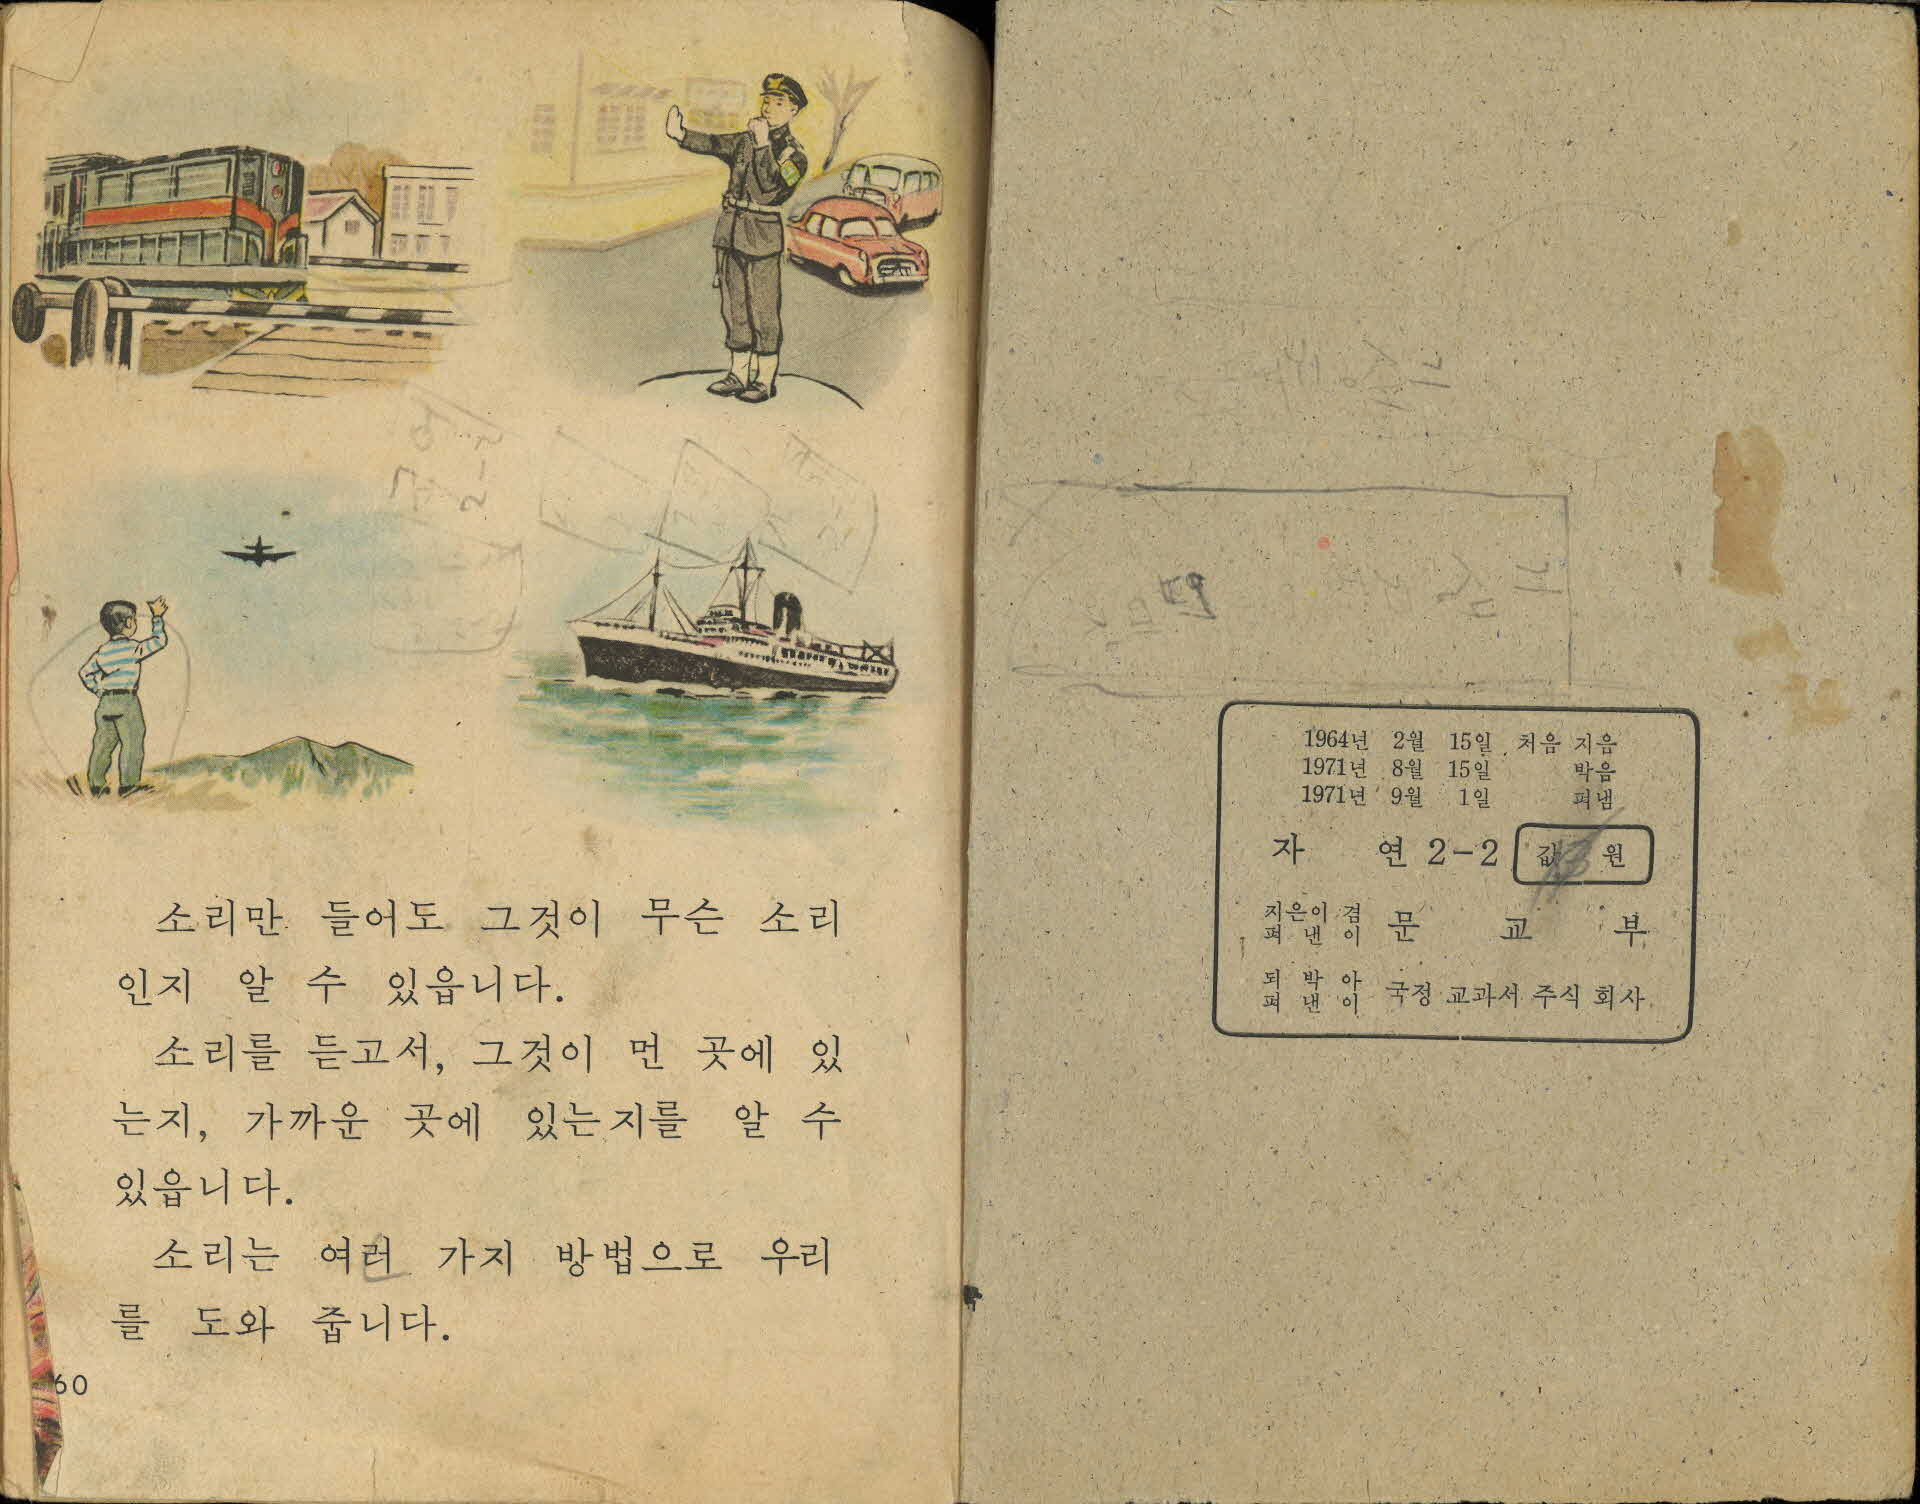 소리만 들어도 그것이 무슨 소리
인지 알 수 있읍니다.
소리를 듣고서, 그것이 먼 곳에 있
는지, 가까운 곳에 있는지를 알 수
있읍니다.
소리는 여러 가지 방법으로 우리
를 도와 줍니다.
60
1964년 2월 15일 처음 지음
1971년 8월 15일 박음
1971년 9월 1일 펴냄
자 연 2-2 값 원
지은이 겸
펴 낸 이 문 교 부
되 박 아
펴 낸 이 국정 교과서 주식 회사